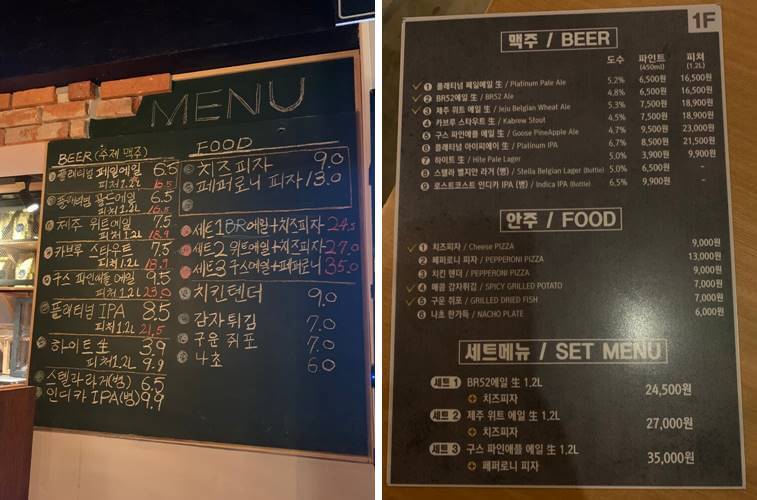 MENU
BEER(수제 맥주)
플래티넘 페일에일 6.5
피처 1.2L 16.5
플래티넘 골드에일 6.5
피처 1.2L 16.5
제주 위트에일 7.5
피처 1.2L 18.9
카브루 스타우트 7.5
피처 1.2L 18.9
구스 파인애플 에일 9.5
피처 1.2L 23.0
플래티넘 IPA 8.5
피처 1.2L 21.5
하이트 生 3.9
피처 1.2L 9.9
스텔라 라거(병) 6.5
인디카 IPA(병) 9.9
FOOD
치즈피자 9.0
페퍼로니 피자 13.0
세트1 BR에일+치즈피자 24.5
세트2 위트에일+치즈피자 27.0
세트3 구스에일+페퍼로니 35.0
치킨텐더 9.0
감자튀김 7.0
구운 쥐포 7.0
나초 6.0
1F
맥주 / BEER
도수 파인트 (450ml) 피쳐 (1.2L)
1 플래티넘 페일에일 生 / Platinum Pale Ale 5.2% 6,500원 16,500원
2 BR52에일 生 / BR52 Ale 4.8% 6,500원 16,500원
3 제주 위트 에일 生 / Jeju Belgian Wheat Ale 5.3% 7,500원 18,900원
4 카브루 스타우트 生 / Kabrew Stout 4.5% 7,500원 18,900원
5 구스 파인애플 에일 生 / Goose PineApple Ale 4.7% 9,500원 23,000원
6 플래티넘 아이피에이 生 / Platinum IPA 6.7% 8,500원 21,500원
7 하이트 生 / Hite Pale Lager 5.0% 3,900원 9,900원
8 스텔라 벨지안 라거 (병) / Stella Belgian Lager (Bottle) 5.0% 6,500원 -
9 로스트코스트 인디카 IPA (병) / Indica IPA (Bottle) 6.5% 9,900원
안주 / FOOD
1 치즈피자 / Cheese PIZZA 9,000원
2 페퍼로니 피자 / PEPPERONI PIZZA 13,000원
3 치킨 텐더 / PEPPERONI PIZZA 9,000원
4 매콤 감자튀김 / SPICY GRILLED POTATO 7,000원
5 구운 쥐포 / GRILLED DRIED FISH 7,000원
6 나초 한가득 / NACHO PLATE 6,000원
세트메뉴 / SET MENU
세트 1 BR52에일 生 1.2L
+ 치즈피자 24,500원
세트 2 제주 위트 에일 生 1.2L
+ 치즈피자 27,000원
세트 3 구스 파인애플 에일 生 1.2L
+ 페퍼로니 피자 35,000원